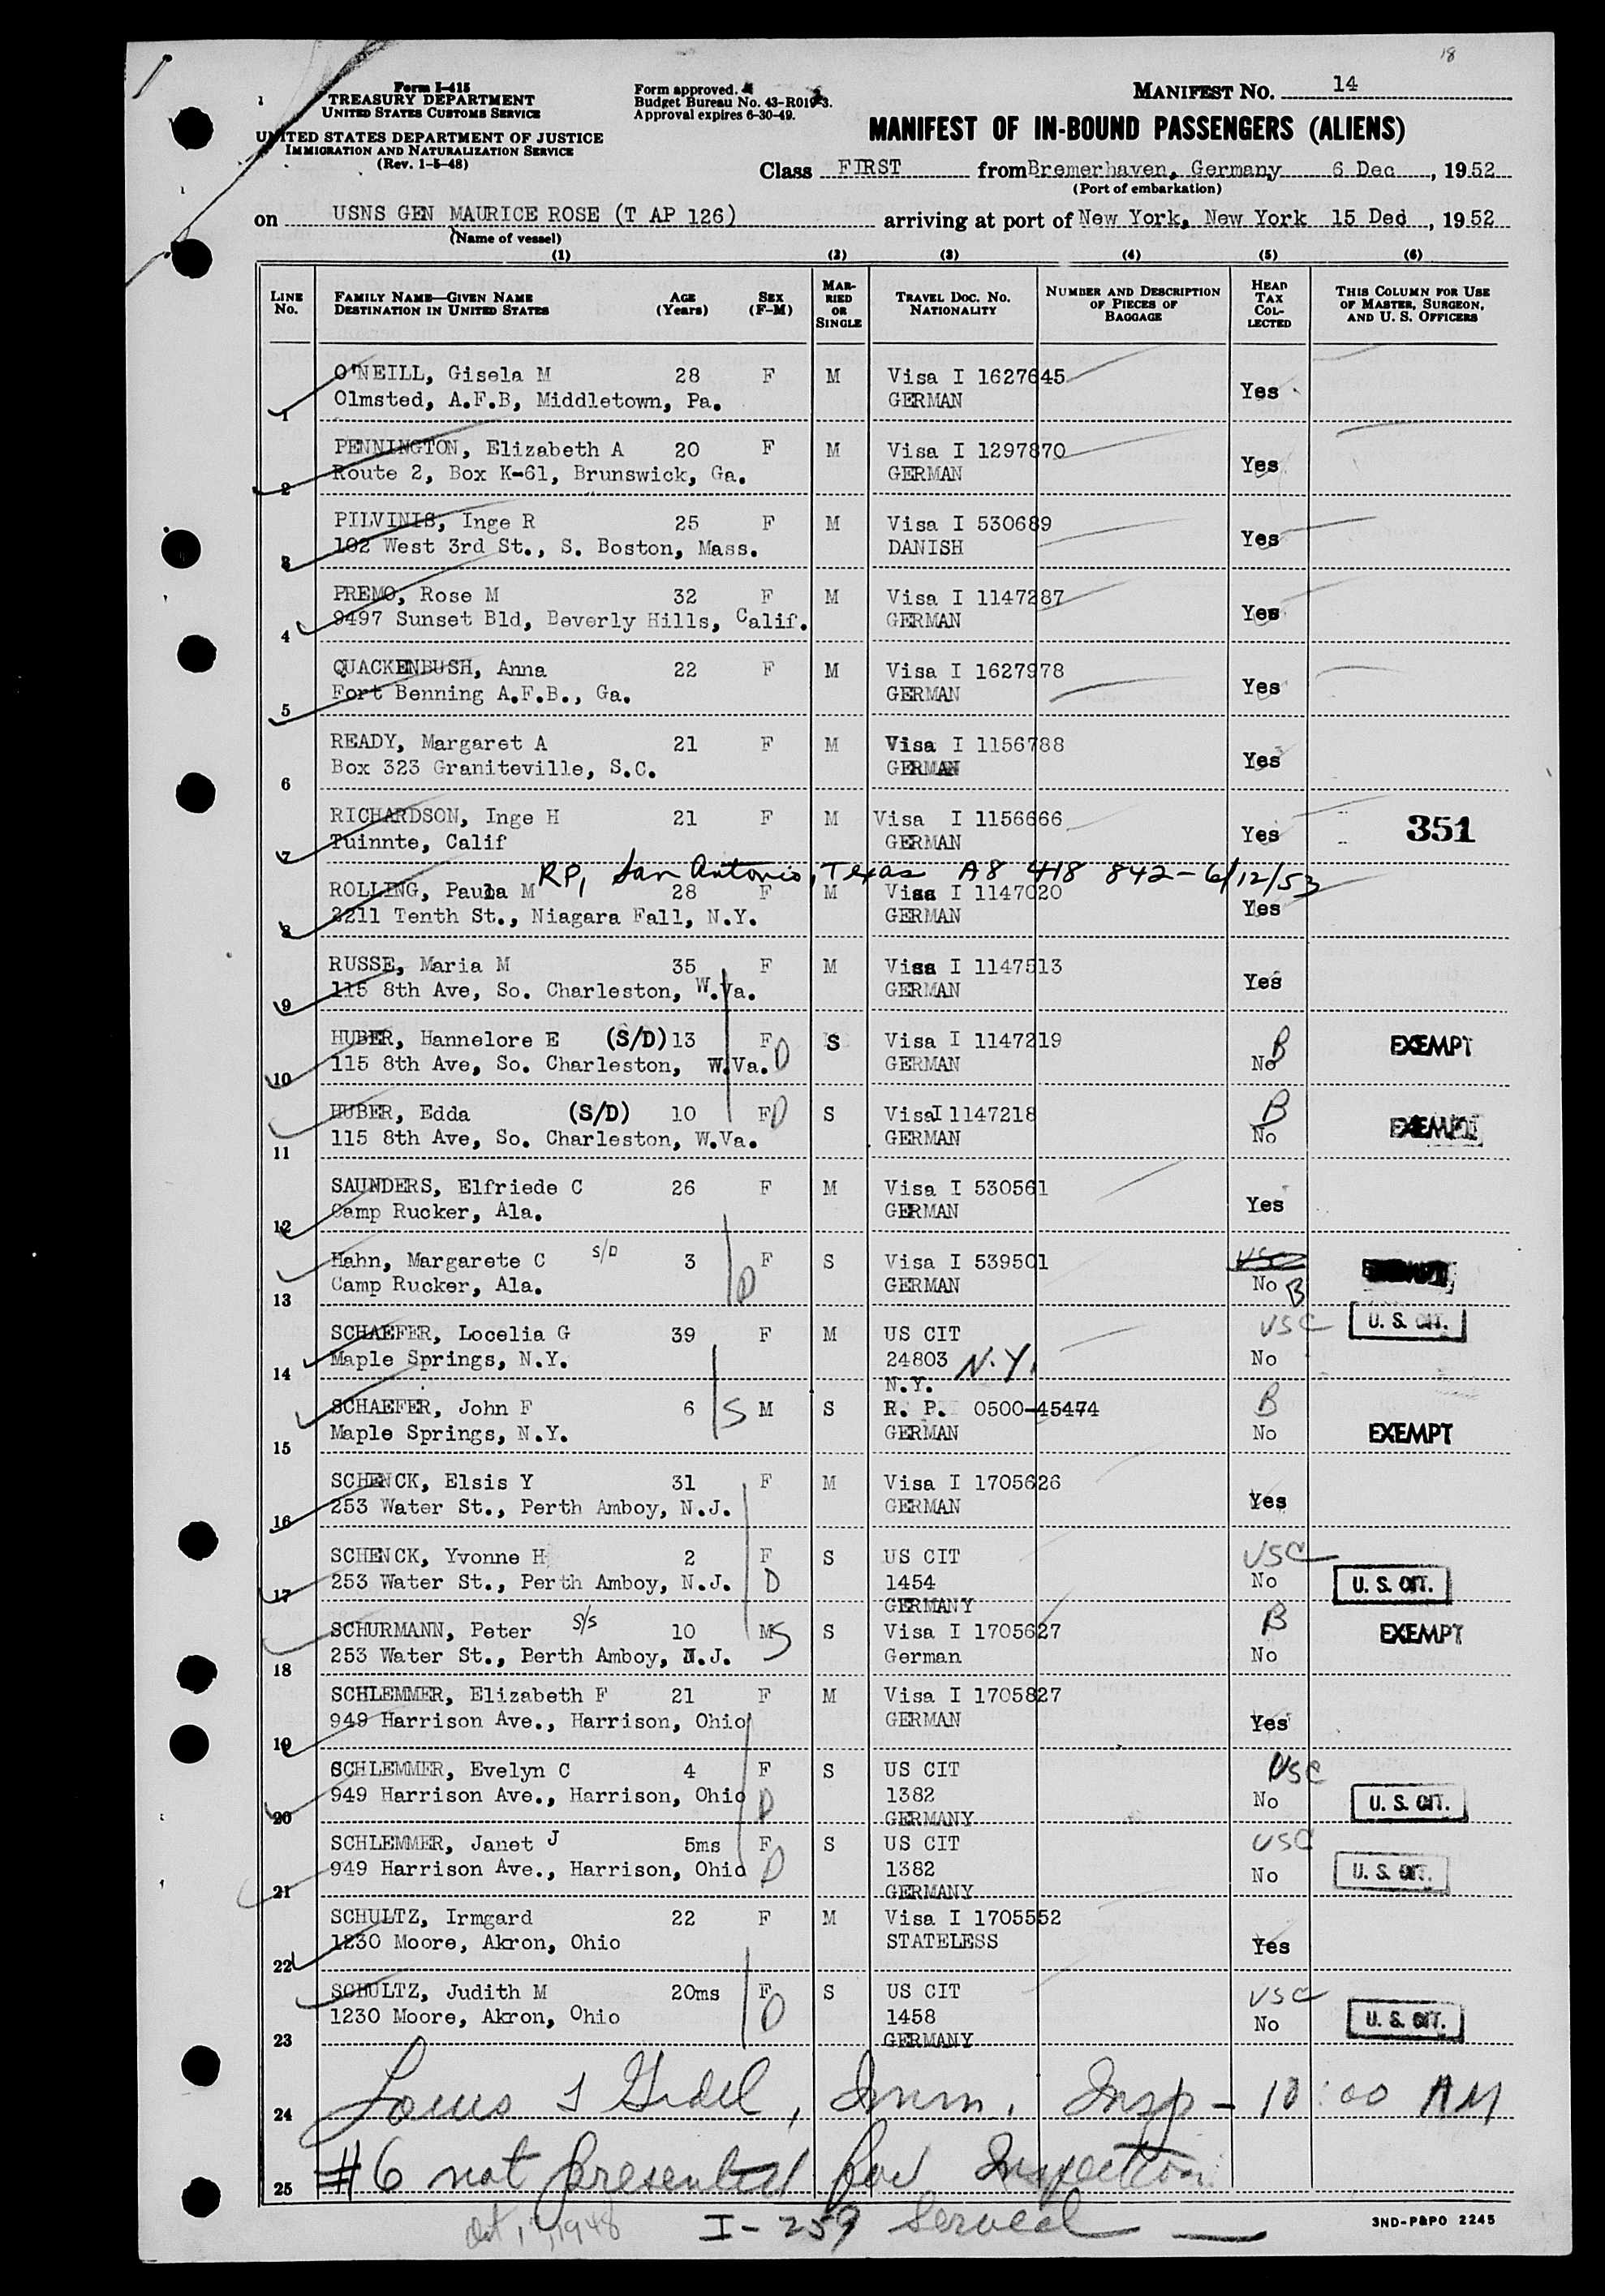 18
Form I-415
TREASURY DEPARTMENT
UNITED STATES CUSTOMS SERVICE
UNITED STATES DEPARTMENT OF JUSTICE
IMMIGRATION AND NATURALIZATION SERVICE
(Rev. 1-5-48)
Form approved.
Budget Bureau No. 43-R019-3.
Approval expires 6-30-49.
MANIFEST NO. 14
MANIFEST OF IN-BOUND PASSENGERS (ALIENS)
Class FIRST from Bremerhaven, Germany 6 Dec, 1952
(Port of embarkation)
on USNS GEN MAURICE ROSE (T AP 126) arriving at port of New York, New York 15 Ded, 1952
(Name of vessel)
(1) (2) (3) (4) (5) (6)
LINE NO. FAMILY NAME—GIVEN NAME DESTINATION IN UNITED STATES AGE (Years) SEX (F-M) MARRIED OR SINGLE TRAVEL DOC. NO. NATIONALITY NUMBER AND DESCRIPTION OF PIECES OF BAGGAGE HEAD TAX COLLECTED THIS COLUMN FOR USE OF MASTER, SURGEON, AND U. S. OFFICERS
O'NEILL, Gisela M 28 F M Visa I 1627645
1 Olmsted, A.F.B, Middletown, Pa. GERMAN Yes
PENNINGTON, Elizabeth A 20 F M Visa I 1297870
2 Route 2, Box K-61, Brunswick, Ga. GERMAN Yes
PILVINIS, Inge R 25 F M Visa I 530689
3 102 West 3rd St., S. Boston, Mass. DANISH Yes
PREMO, Rose M 32 F M Visa I 1147287
4 9497 Sunset Bld, Beverly Hills, Calif. GERMAN Yes
QUACKENBUSH, Anna 22 F M Visa I 1627978
5 Fort Benning A.F.B., Ga. GERMAN Yes
READY, Margaret A 21 F M Visa I 1156788
6 Box 323 Graniteville, S.C. GERMAN Yes
RICHARDSON, Inge H 21 F M Visa I 1156666
7 Tuinnte, Calif GERMAN Yes 351
RP, San Antonio, Texas A8 418 842-6/12/53
ROLLING, Paula M 28 F M Visa I 1147020
8 2211 Tenth St., Niagara Fall, N.Y. GERMAN Yes
RUSSE, Maria M 35 F M Visa I 1147513
9 115 8th Ave, So. Charleston, W.Va. GERMAN Yes
HUBER, Hannelore E (S/D) 13 F D S Visa I 1147219 B EXEMPT
10 115 8th Ave, So. Charleston, W.Va. GERMAN No
HUBER, Edda (S/D) 10 F D S Visa I 1147218 B EXEMPT
11 115 8th Ave, So. Charleston, W.Va. GERMAN No
SAUNDERS, Elfriede C 26 F M Visa I 530561
12 Camp Rucker, Ala. GERMAN Yes
Hahn, Margarete C S/D 3 F S Visa I 539501 USC EXEMPT
13 Camp Rucker, Ala. D GERMAN No B
SCHAEFER, Locelia G 39 F M US CIT USC U. S. CIT.
14 Maple Springs, N.Y. 24803 N.Y. No
N.Y.
SCHAEFER, John F 6 S M S R. P. 0500-45474 B
15 Maple Springs, N.Y. GERMAN No EXEMPT
SCHENCK, Elsis Y 31 F M Visa I 1705626
16 253 Water St., Perth Amboy, N.J. GERMAN Yes
SCHENCK, Yvonne H 2 F S US CIT USC
17 253 Water St., Perth Amboy, N.J. D 1454 No U. S. CIT.
GERMANY
SCHURMANN, Peter S/S 10 M S S Visa I 1705627 B EXEMPT
18 253 Water St., Perth Amboy, N.J. German No
SCHLEMMER, Elizabeth F 21 F M Visa I 1705827
19 949 Harrison Ave., Harrison, Ohio GERMAN Yes
SCHLEMMER, Evelyn C 4 F S US CIT USC
20 949 Harrison Ave., Harrison, Ohio D 1382 No U. S. CIT.
GERMANY
SCHLEMMER, Janet J 5ms F S US CIT USC
21 949 Harrison Ave., Harrison, Ohio D 1382 No U. S. CIT.
GERMANY
SCHULTZ, Irmgard 22 F M Visa I 1705552
22 1230 Moore, Akron, Ohio STATELESS Yes
SCHULTZ, Judith M 20ms F S US CIT USC
23 1230 Moore, Akron, Ohio D 1458 No U. S. CIT.
GERMANY
24 Louis Imm. Insp - 10:00 AM
25 #6 not presented for Inspection
Oct 1, 1948 I-259 Served
3ND-P&PO 2245